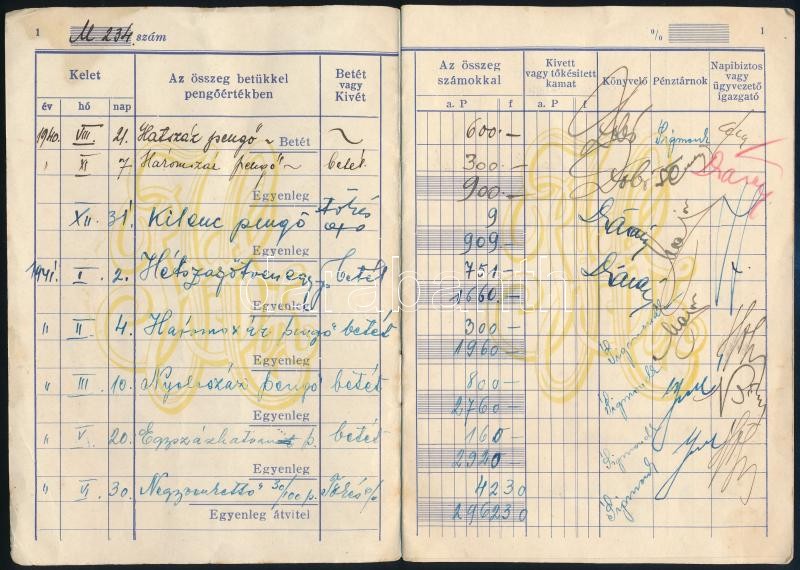 1 M 234. szám
Kelet Az összeg betükkel pengőértékben Betét vagy Kivét
év hó nap
1940. VIII. 21. Hatszáz pengő ~ Betét ~
" XI 7 Háromszáz pengő ~ betét
Egyenleg
XII. 31. Kilenc pengő Tőkés
Egyenleg
1941. I. 2. Hétszázötvenegy p. betét
Egyenleg
" II 4. Háromszáz pengő betét
Egyenleg
" III. 10. Nyolcszáz pengő betét
Egyenleg
" V. 20. Egyszázhatvan p. betét
Egyenleg
" VI 30. 30/100 p. Tőkés
Egyenleg átvitel
% 1
Az összeg számokkal Kivett vagy tőkésitett kamat Könyvelő Pénztárnok Napibiztos vagy ügyvezető igazgató
a. P f a. P f
600.— Zsigmond
300.—
900.—
9
909.—
751.—
1660.—
300—
1960— Zsigmond
800—
2760— Zsigmond
160—
2920 Zsigmond
42 30
2962 30 Zsigmond
darabanth